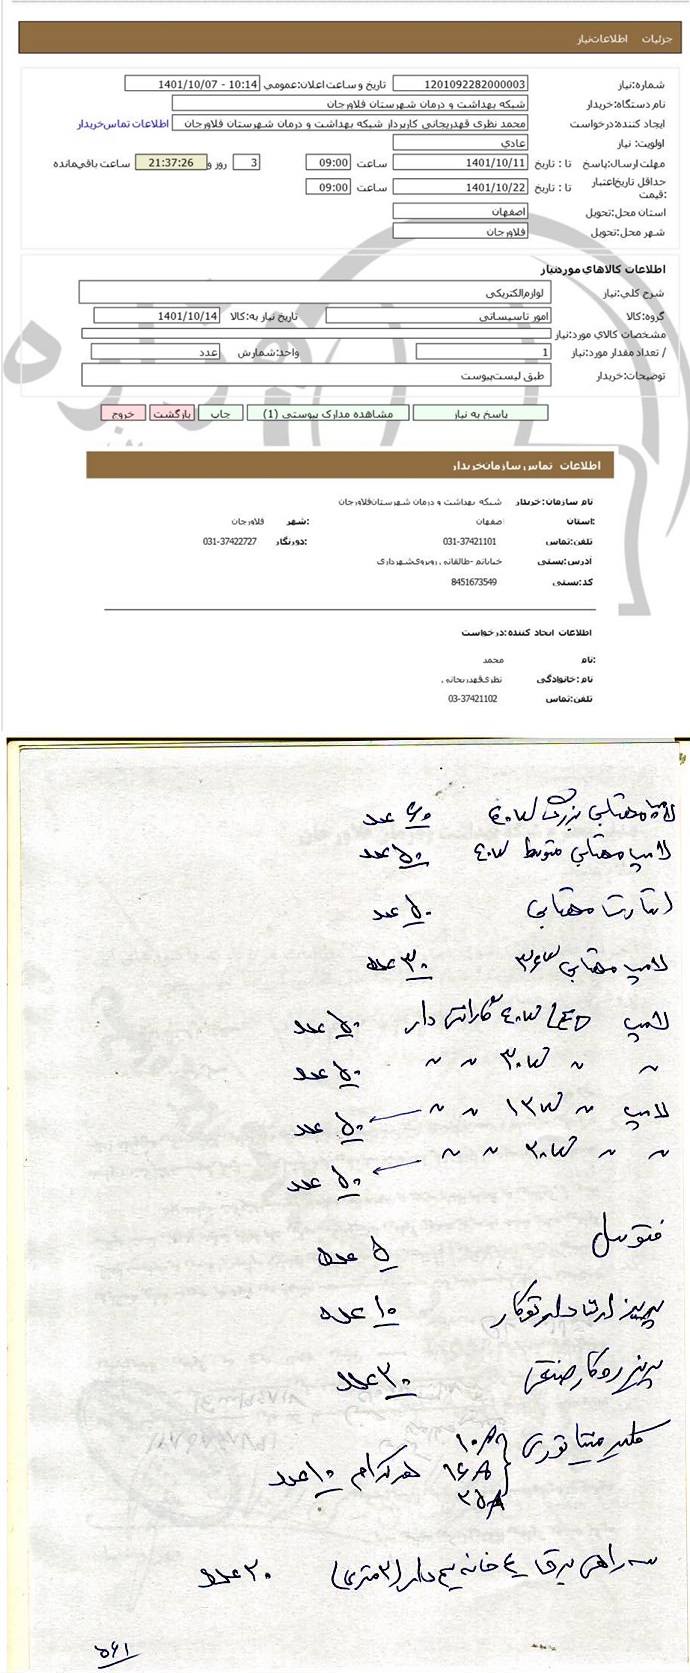 جزئیات اطلاعات نیاز
شماره نیاز: 1201092282000003 تاریخ و ساعت اعلان عمومی: 1401/10/07 - 10:14
نام دستگاه خریدار: شبکه بهداشت و درمان شهرستان فلاورجان
ایجاد کننده درخواست: محمد نظری قهدریجانی کارپرداز شبکه بهداشت و درمان شهرستان فلاورجان اطلاعات تماس خریدار
اولویت نیاز: عادی
مهلت ارسال پاسخ: تا تاریخ: 1401/10/11 ساعت 09:00 3 روز و 21:37:26 ساعت باقی مانده
حداقل تاریخ اعتبار قیمت: تا تاریخ: 1401/10/22 ساعت 09:00
استان محل تحویل: اصفهان
شهر محل تحویل: فلاورجان
اطلاعات کالاهای مورد نیاز
شرح کلی نیاز: لوازم الکتریکی
گروه کالا: امور تاسیساتی تاریخ نیاز به کالا: 1401/10/14
مشخصات کالای مورد نیاز:
تعداد / مقدار مورد نیاز: 1 واحد شمارش: عدد
توضیحات خریدار: طبق لیست پیوست
پاسخ به نیاز مشاهده مدارک پیوستی (1) چاپ بازگشت خروج
اطلاعات تماس سازمان خریدار
نام سازمان خریدار: شبکه بهداشت و درمان شهرستان فلاورجان
استان: اصفهان شهر: فلاورجان
تلفن تماس: 031-37421101 دورنگار: 031-37422727
آدرس پستی: خیابانم -طالقانی روبروی شهرداری
کد پستی: 8451673549
اطلاعات ایجاد کننده درخواست
نام: محمد
نام خانوادگی: نظری قهدریجانی
تلفن تماس: 03-37421102
لامپ مهتابی بزرگ ۴۰w ۶۰ عدد
لامپ مهتابی متوسط ۴۰w ۵۰ عدد
استارت مهتابی ۵۰ عدد
لامپ مهتابی ۳۶w ۳۰ عدد
لامپ LED ۴۰w گارانتی دار ۵۰ عدد
〃 〃 ۳۰w 〃 〃 ۵۰ عدد
لامپ 〃 ۱۳w 〃 〃 ← ۵۰ عدد
〃 〃 ۲۰w 〃 〃 ← ۵۰ عدد
فتوسل ۵ عدد
پریز ارت دار توکار ۱۰ عدد
پریز روکار صنعتی ۳۰ عدد
کلید مینیاتوری ۱۰A
۱۶A هرکدام ۱۰ عدد
۲۵A
سه راهی برق ۴ خانه سیم دار (۳ متری) ۲۰ عدد
۵۶۱